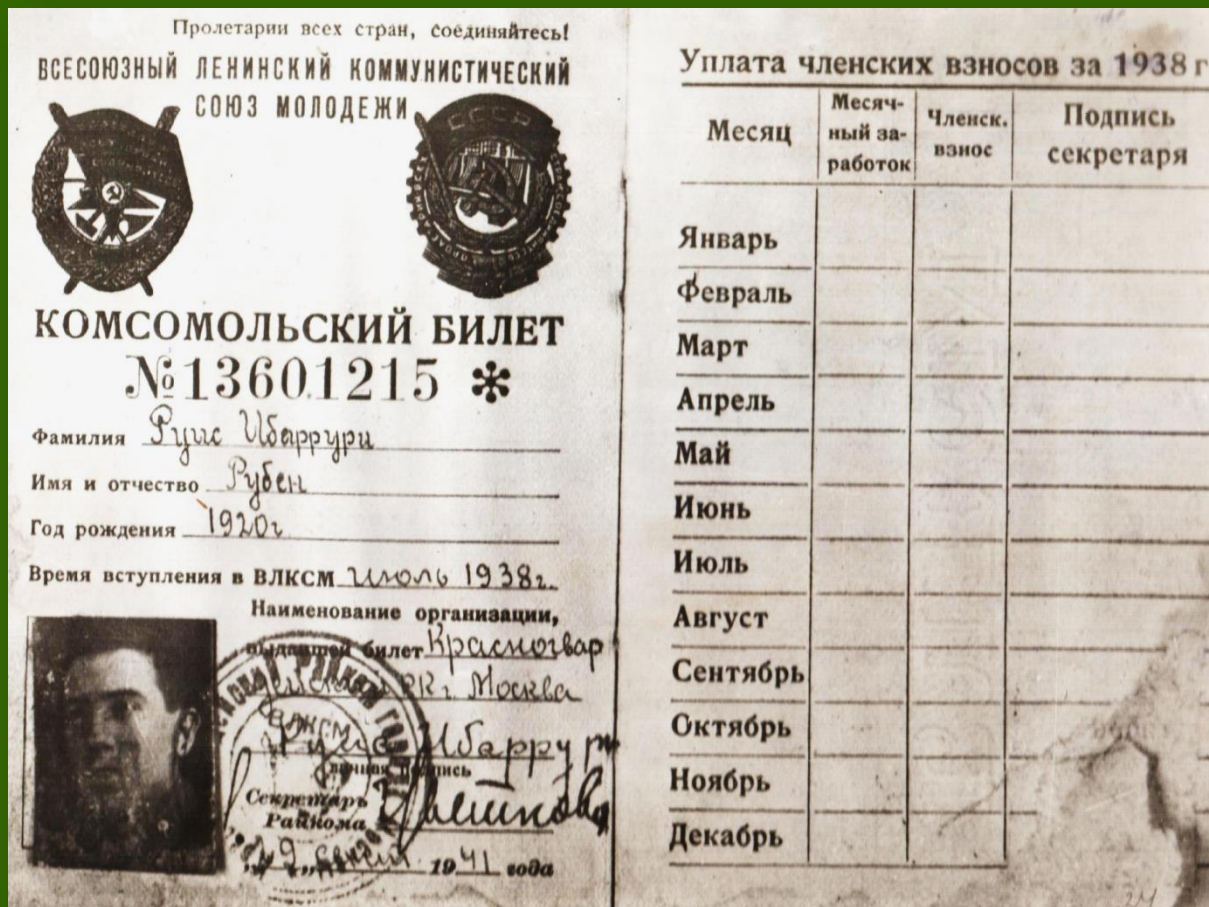 Пролетарии всех стран, соединяйтесь!
ВСЕСОЮЗНЫЙ ЛЕНИНСКИЙ КОММУНИСТИЧЕСКИЙ
СОЮЗ МОЛОДЕЖИ
СССР
КОМСОМОЛЬСКИЙ БИЛЕТ
№13601215 *
Фамилия Руис Ибаррури
Имя и отчество Рубен
Год рождения 1920г
Время вступления в ВЛКСМ июль 1938г.
Наименование организации,
выдавшей билет Красногвар
РК г. Москва
ВЛКСМ
Руис Ибаррури
личная подпись
Секретарь
Райкома
29 август 1941 года
Уплата членских взносов за 1938 г
Месяц
Месяч-
ный за-
работок
Членск.
взнос
Подпись
секретаря
Январь
Февраль
Март
Апрель
Май
Июнь
Июль
Август
Сентябрь
Октябрь
Ноябрь
Декабрь
24